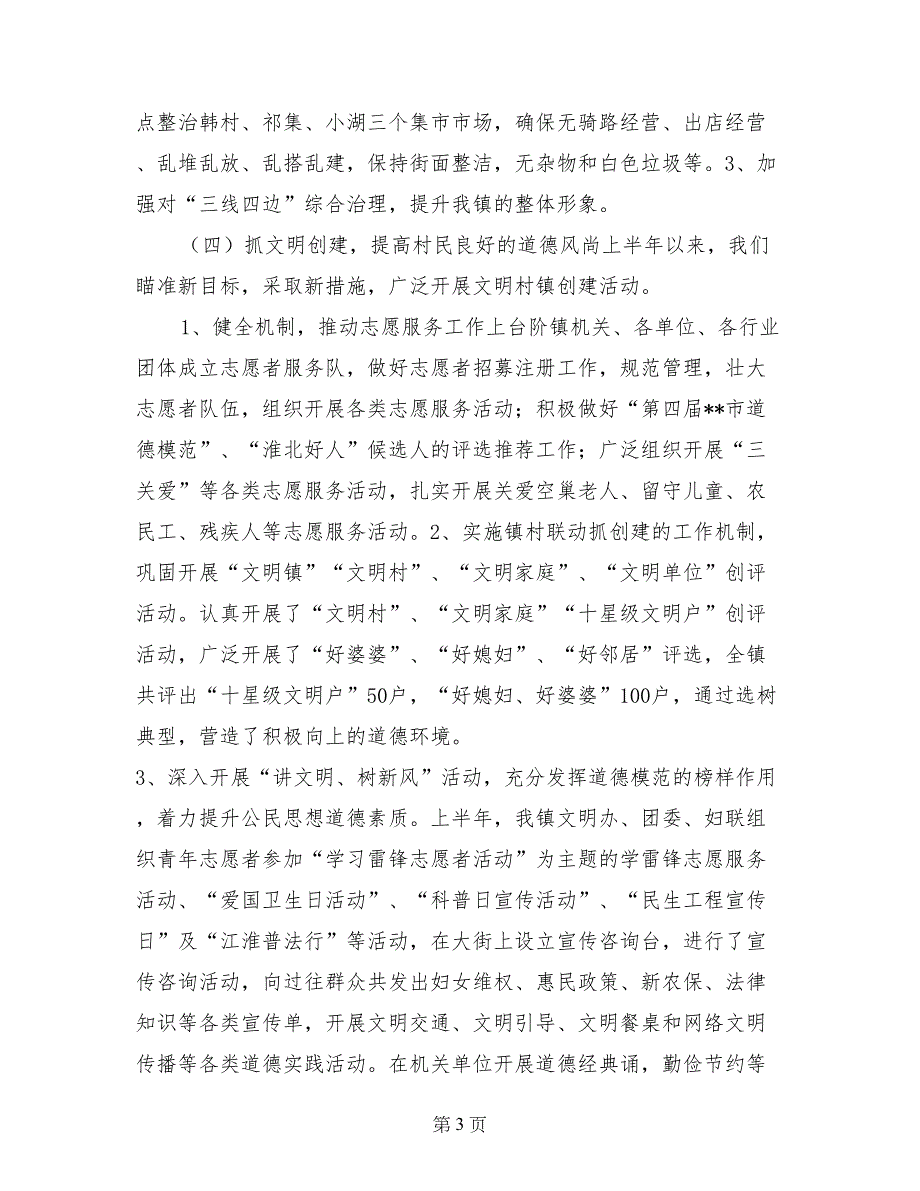 点整治韩村、祁集、小湖三个集市市场，确保无骑路经营、出店经营
、乱堆乱放、乱搭乱建，保持街面整洁，无杂物和白色垃圾等。3、加
强对“三线四边”综合治理，提升我镇的整体形象。
（四）抓文明创建，提高村民良好的道德风尚上半年以来，我们
瞄准新目标，采取新措施，广泛开展文明村镇创建活动。
1、健全机制，推动志愿服务工作上台阶镇机关、各单位、各行业
团体成立志愿者服务队，做好志愿者招募注册工作，规范管理，壮大
志愿者队伍，组织开展各类志愿服务活动；积极做好“第四届**市道
德模范”、“淮北好人”候选人的评选推荐工作；广泛组织开展“三
关爱”等各类志愿服务活动，扎实开展关爱空巢老人、留守儿童、农
民工、残疾人等志愿服务活动。2、实施镇村联动抓创建的工作机制，
巩固开展“文明镇”“文明村”、“文明家庭”、“文明单位”创评
活动。认真开展了“文明村”、“文明家庭”“十星级文明户”创评
活动，广泛开展了“好婆婆”、“好媳妇”、“好邻居”评选，全镇
共评出“十星级文明户”50户，“好媳妇、好婆婆”100户，通过选树
典型，营造了积极向上的道德环境。
3、深入开展“讲文明、树新风”活动，充分发挥道德模范的榜样作用
，着力提升公民思想道德素质。上半年，我镇文明办、团委、妇联组
织青年志愿者参加“学习雷锋志愿者活动”为主题的学雷锋志愿服务
活动、“爱国卫生日活动”、“科普日宣传活动”、“民生工程宣传
日”及“江淮普法行”等活动，在大街上设立宣传咨询台，进行了宣
传咨询活动，向过往群众共发出妇女维权、惠民政策、新农保、法律
知识等各类宣传单，开展文明交通、文明引导、文明餐桌和网络文明
传播等各类道德实践活动。在机关单位开展道德经典诵，勤俭节约等
第 3 页